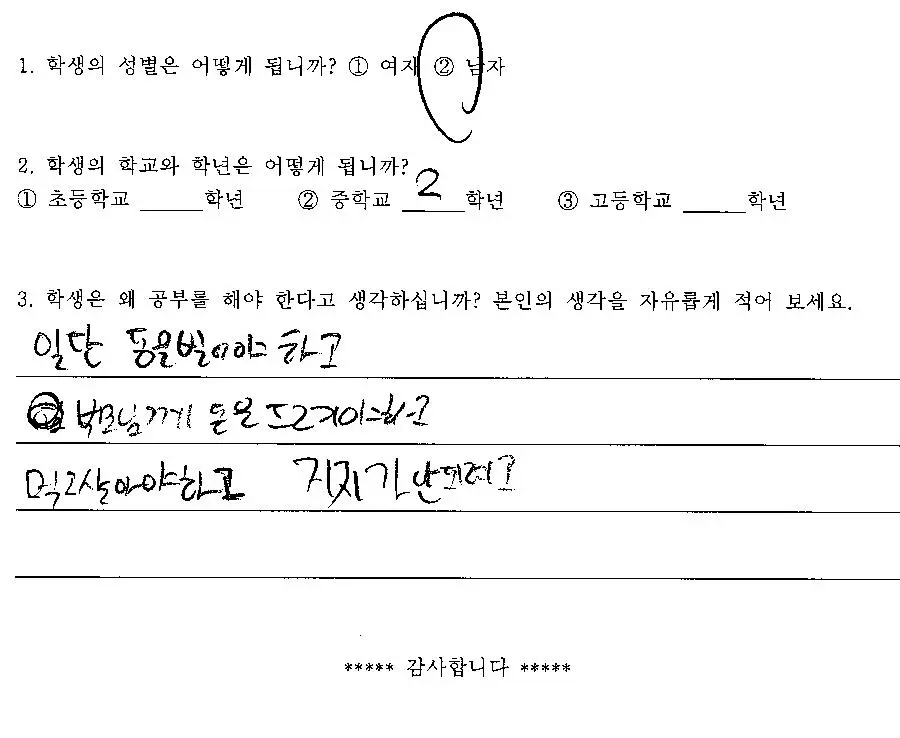 1. 학생의 성별은 어떻게 됩니까? ① 여자 ② 남자
2. 학생의 학교와 학년은 어떻게 됩니까?
① 초등학교 _____학년 ② 중학교 2학년 ③ 고등학교 _____학년
3. 학생은 왜 공부를 해야 한다고 생각하십니까? 본인의 생각을 자유롭게 적어 보세요.
일단 돈을벌어야 하고
부모님께 돈은 드려야하고
먹고살아야하고 거지가 안되려고
***** 감사합니다 *****